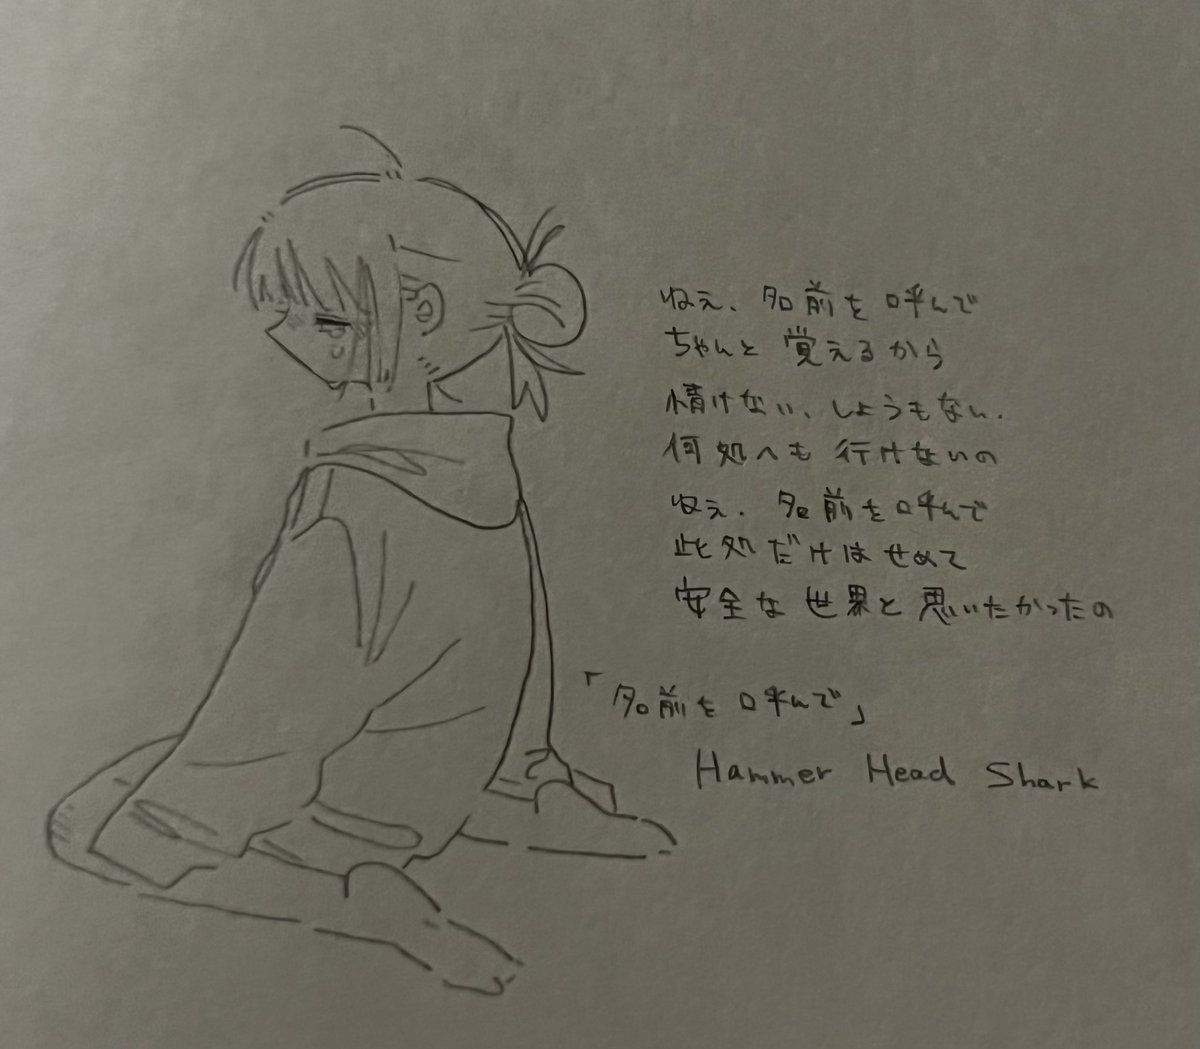 ねぇ、名前を呼んで
ちゃんと覚えるから
情けない、しょうもない、
何処へも行けないの
ねぇ、名前を呼んで
此処だけはせめて
安全な世界と思いたかったの
「名前を呼んで」
Hammer Head Shark